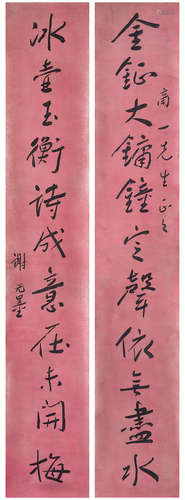 金鉦大鏞鐘定聲依無盡水
商一先生正之
冰壺玉衡詩成意在未開梅
謝元墨